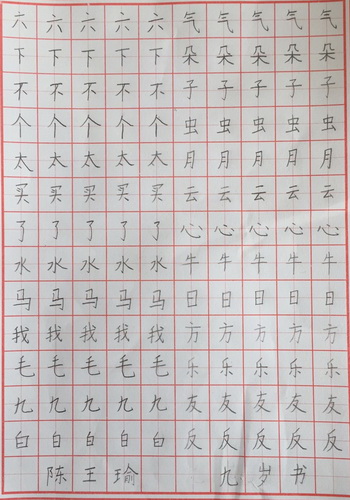 六六六六六气气气气气
下下下下下朵朵朵朵朵
不不不不不子子子子子
个个个个个虫虫虫虫虫
太太太太太月月月月月
买买买买买云云云云云
了了了了了心心心心心
水水水水水牛牛牛牛牛
马马马马马日日日日日
我我我我我方方方方方
毛毛毛毛毛乐乐乐乐乐
九九九九九友友友友友
白白白白白反反反反反
陈王瑜 九岁书